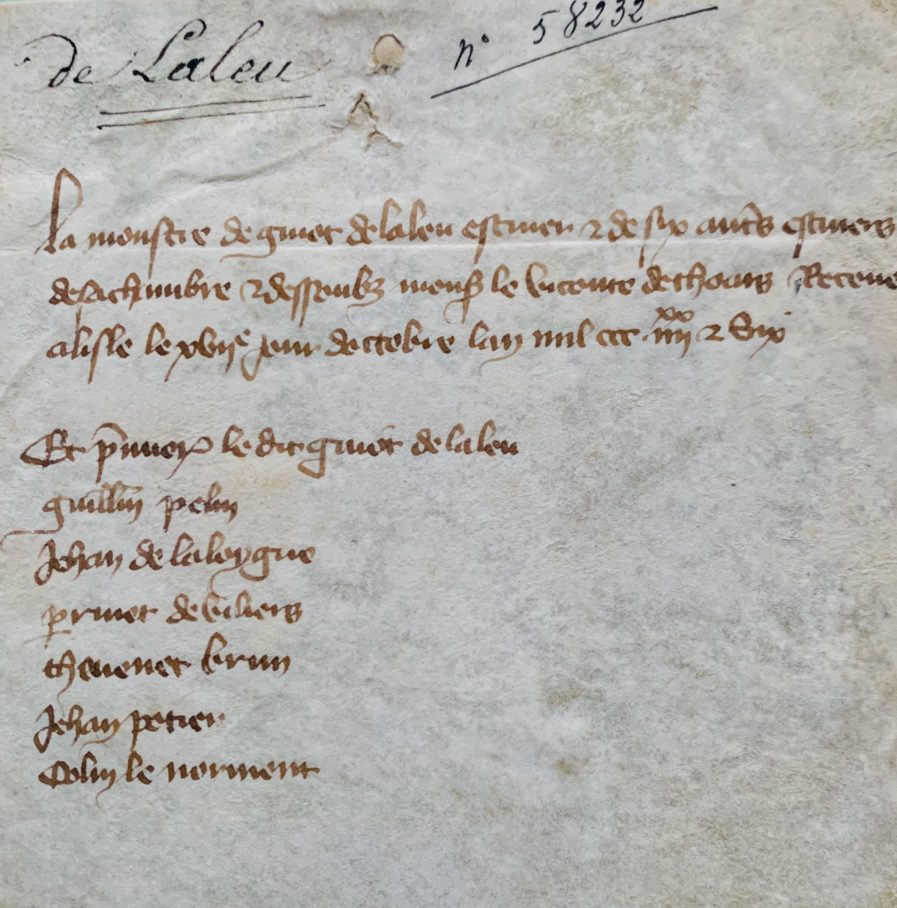 de Laleu
n° 58232
La monstre de guiot de laleu escuier & de six autrs escuiers
de sa chambre & dessoubz mons le viconte de thouars Receue
a lisle le xviie jour doctobre lan mil ccc iiii xx & Six
Et pmier le dit guiot de laleu
guillm pelin
Jehan de laloygne
perinet de viliers
thevenet brun
Jehan potier
Colin le norment